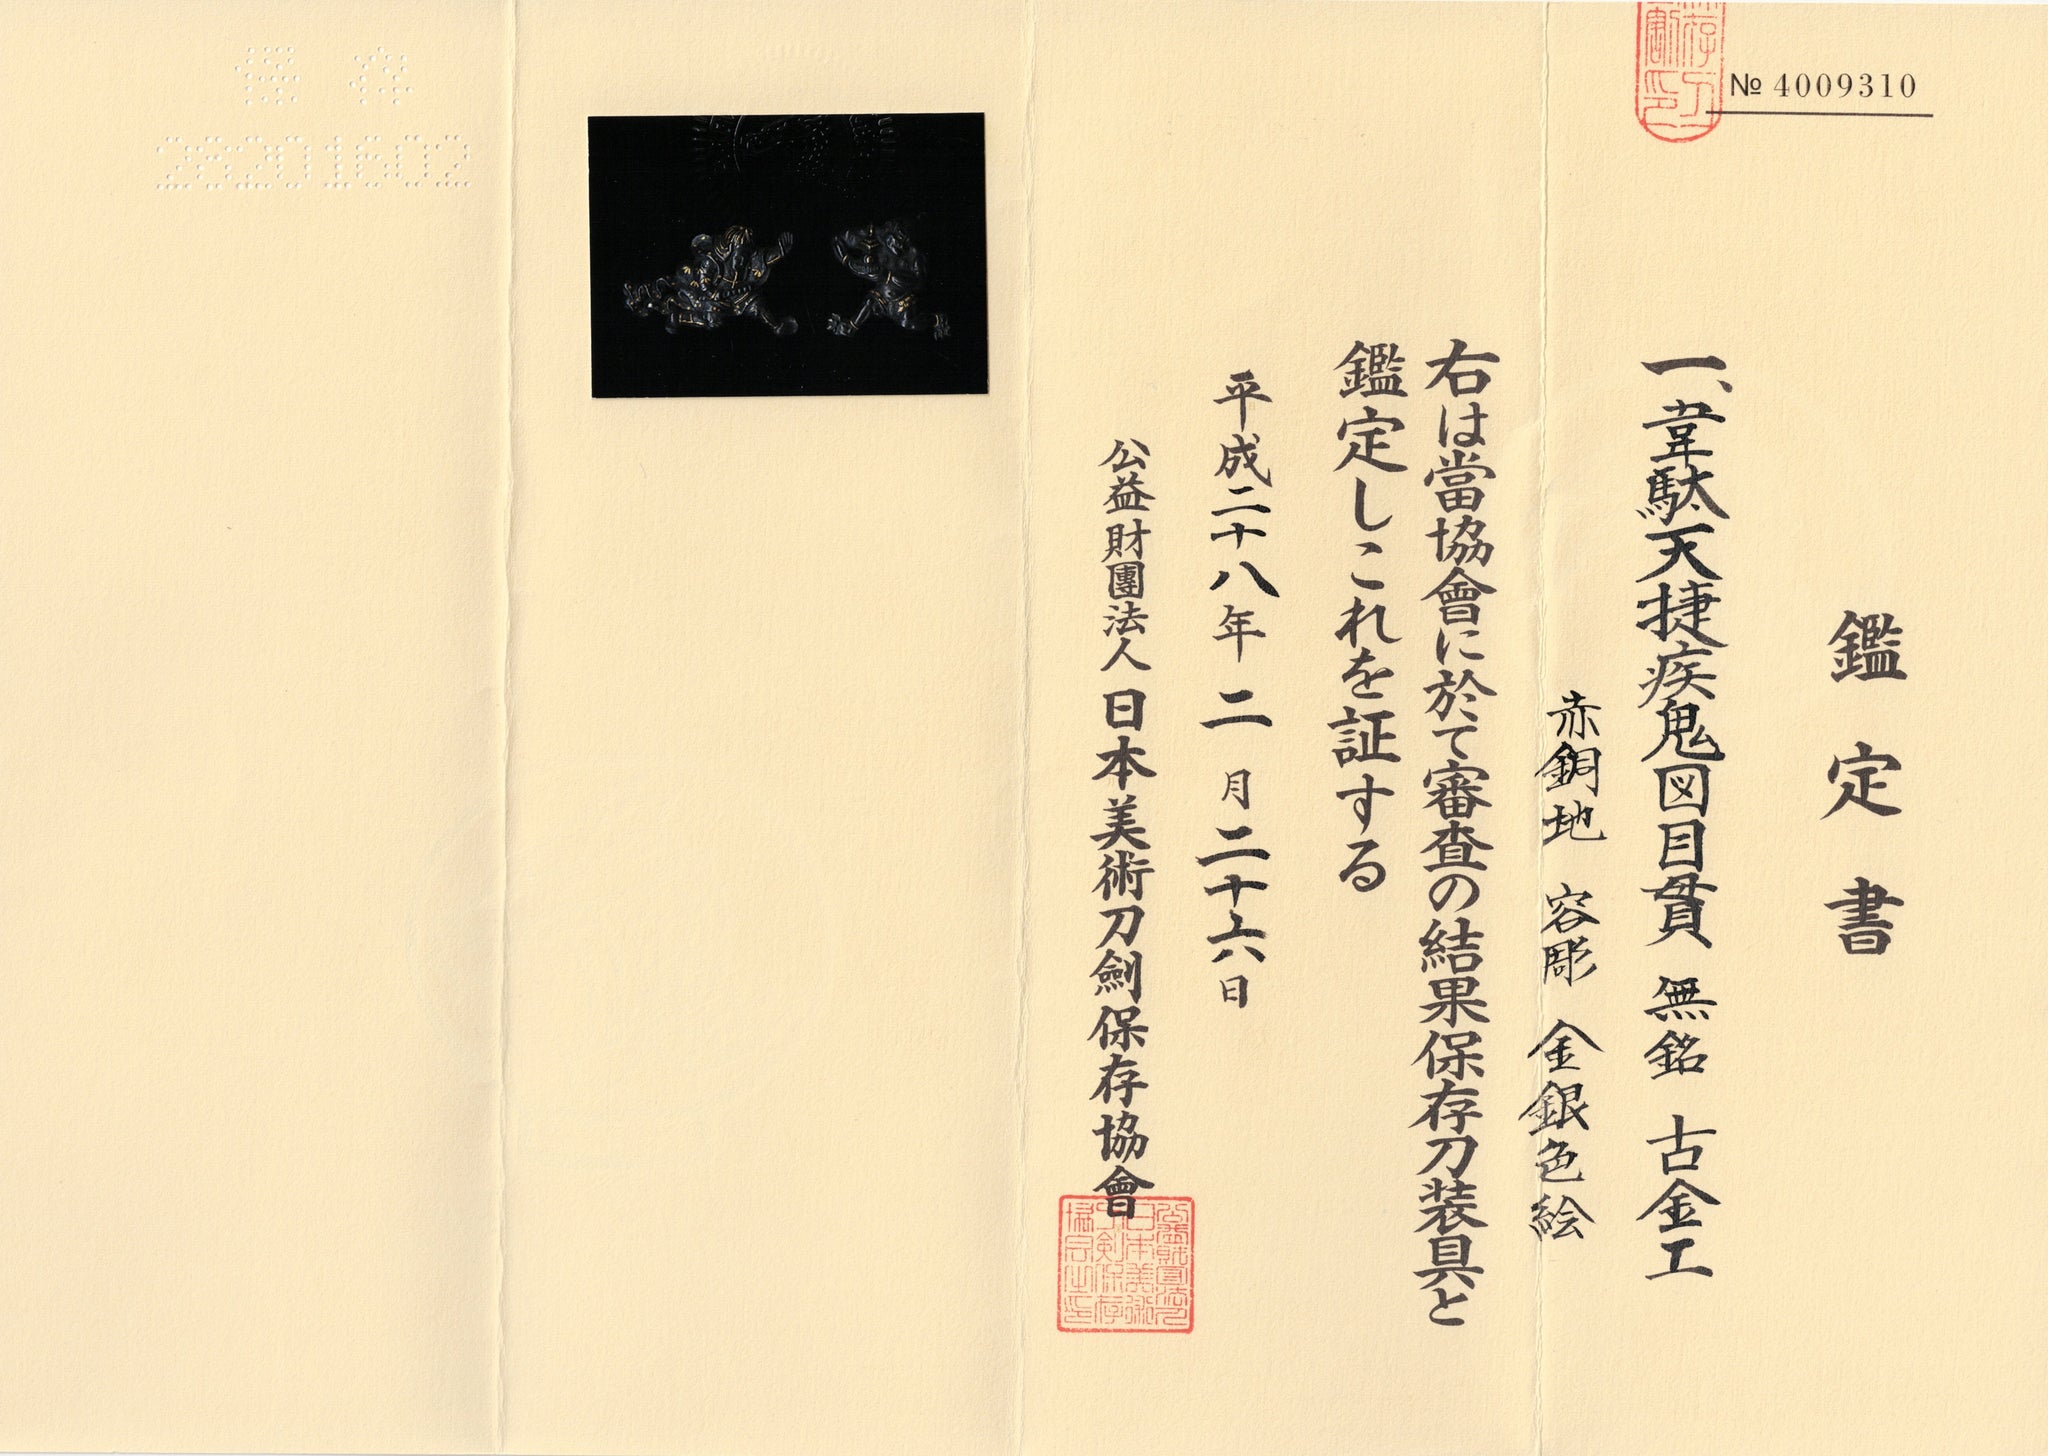 № 4009310
鑑定書
一、韋駄天捷疾鬼図目貫 無銘 古金工
赤銅地 容彫 金銀色絵
右は當協會に於て審査の結果保存刀装具と
鑑定しこれを証する
平成二十八年 二月二十六日
公益財團法人 日本美術刀劍保存協會
保存